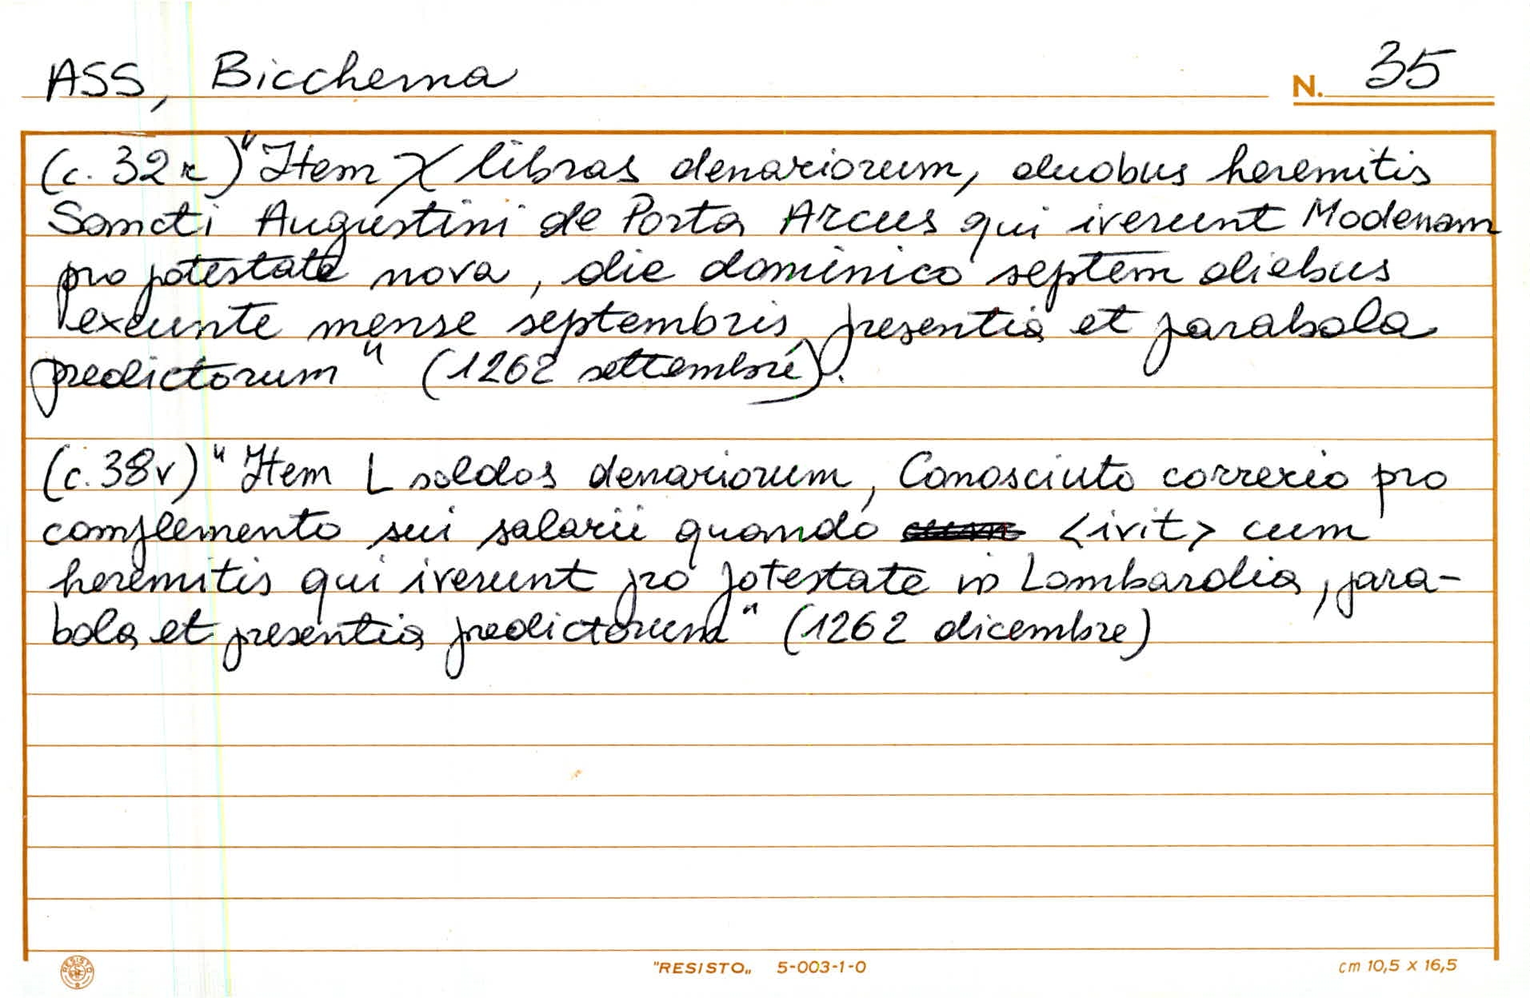 ASS, Biccherna N. 35
(c. 32 r) "Item X libras denariorum, duobus heremitis
Sancti Augustini de Porta Arcus qui iverunt Modenam
pro potestate nova, die dominico septem diebus
exeunte mense septembris presentia et parabola
predictorum" (1262 settembre).
(c. 38v) "Item L soldos denariorum, Conosciuto correrio pro
complemento sui salarii quando <ivit> cum
heremitis qui iverunt pro potestate in Lombardia, para-
bola et presentia predictorum" (1262 dicembre)
RESISTO
"RESISTO„ 5-003-1-0 cm 10,5 x 16,5